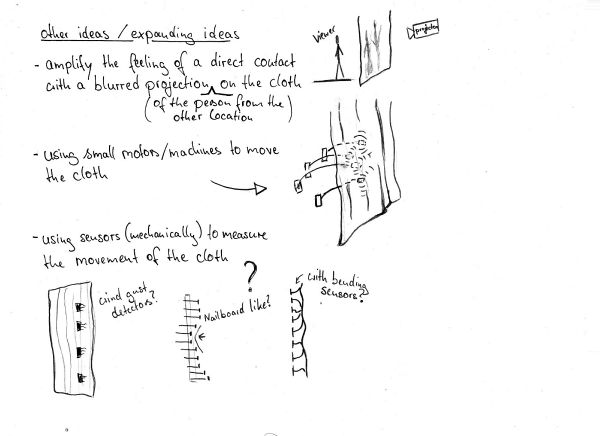 other ideas / expanding ideas
- amplify the feeling of a direct contact
with a blurred projection on the cloth
(of the person from the
other location)
viewer
projector
- using small motors/machines to move
the cloth
- using sensors (mechanically) to measure
the movement of the cloth
?
wind gust
detectors?
Nailboard like?
with bending
sensors?